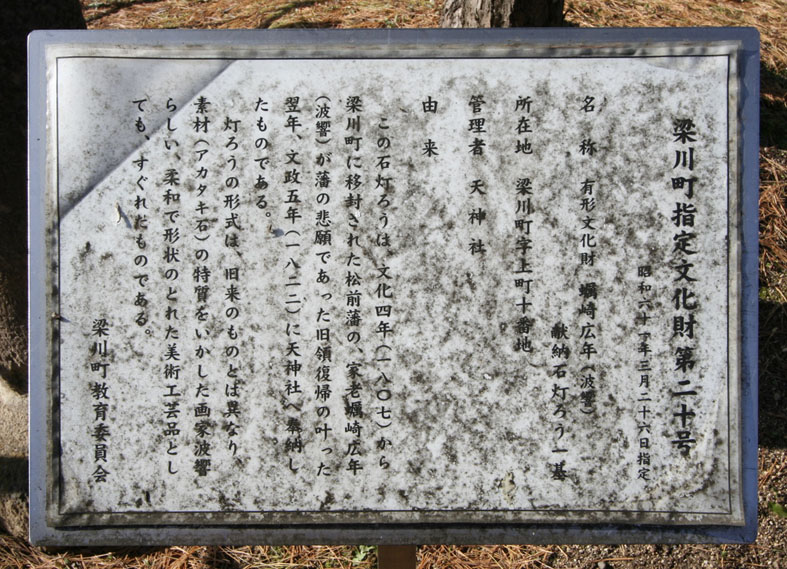 梁川町指定文化財第二十号
昭和六十一年三月二十六日指定
名称 有形文化財 蠣崎広年(波響)
献納石灯ろう一基
所在地 梁川町字上町十番地
管理者 天神社
由来
この石灯ろうは、文化四年(一八〇七)から
梁川町に移封された松前藩の、家老蠣崎広年
(波響)が藩の悲願であった旧領復帰の叶った
翌年、文政五年(一八二二)に天神社へ奉納し
たものである。
灯ろうの形式は、旧来のものとは異なり
素材(アカタキ石)の特質をいかした画家波響
らしい、柔和で形状のとれた美術工芸品とし
ても、すぐれたものである。
梁川町教育委員会